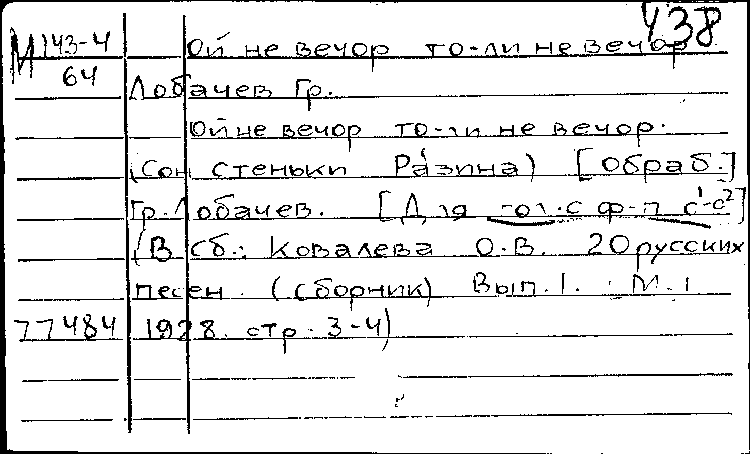 438
М 143-4
64
Ой не вечор то-ли не вечор
Лобачев Гр.
Ой не вечор то-ли не вечор.
(Сон стеньки Разина) [обраб.]
Гр. Лобачев. [Для гол. с ф-п c¹-c²]
(В сб.: Ковалева О.В. 20 русских
песен. (сборник) Вып. 1. М.,
77484 1928. стр. 3-4)